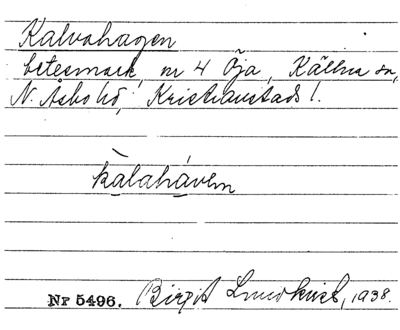 Kalvahagen
betesmark, nr 4 Öja, Källna sn,
N. Asbo hd, Kristianstads l.
kàlahávɛn
Nr 5496. Birgit Lundkvist, 1938.